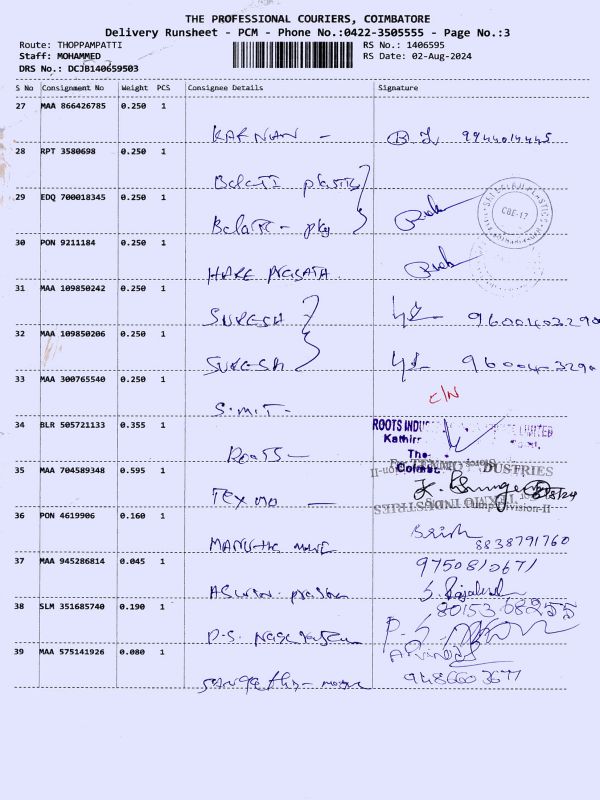 THE PROFESSIONAL COURIERS, COIMBATORE
Delivery Runsheet - PCM - Phone No.:0422-3505555 - Page No.:3
Route: THOPPAMPATTI RS No.: 1406595
Staff: MOHAMMED RS Date: 02-Aug-2024
DRS No.: DCJB140659503
S No Consignment No Weight PCS Consignee Details Signature
27 MAA 866426785 0.250 1
KARNAN - 9944014445
28 RPT 3580698 0.250 1
Balaji plastic
29 EDQ 700018345 0.250 1
Balaji - pkg
SRI BALAJI PLASTICS
CBE-17
30 PON 9211184 0.250 1
HARE PRASATA
31 MAA 109850242 0.250 1
SURESH 9600403290
32 MAA 109850206 0.250 1
SURESH 9600403290
33 MAA 300765540 0.250 1
C/N
S.M.T.
34 BLR 505721133 0.355 1
ROOTS INDUS LIMITED
Kathirn
Roots -
35 MAA 704589348 0.595 1
TEXMO -
TEXMO INDUSTRIES
Pump Division-II
36 PON 4619906 0.160 1
8838791760
37 MAA 945286814 0.045 1
9750810671
Aswin
38 SLM 351685740 0.190 1
8015368255
P.S.
39 MAA 575141926 0.080 1
Sangetha - 9486603677